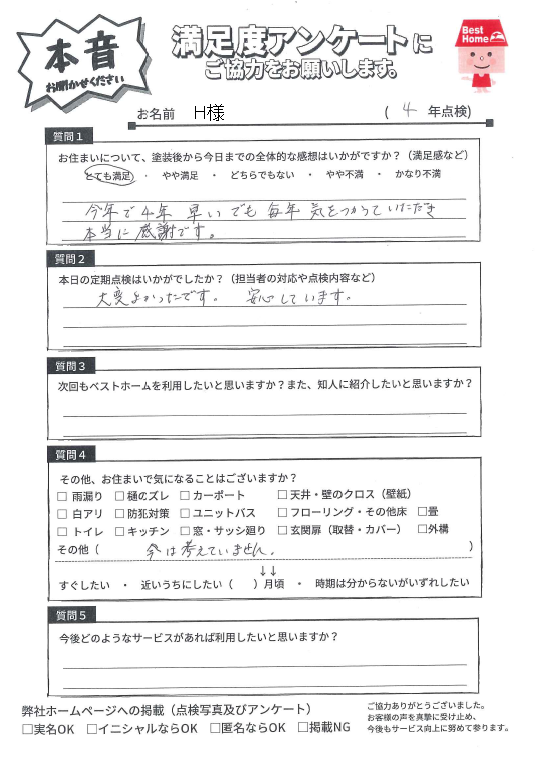 本音
お聞かせください
満足度アンケートに
ご協力をお願いします。
Best
Home
お名前 H様
( 4 年点検)
質問1
お住まいについて、塗装後から今日までの全体的な感想はいかがですか？（満足感など）
とても満足 ・ やや満足 ・ どちらでもない ・ やや不満 ・ かなり不満
今年で4年 早いでも 毎年 気をつかっていただき
本当に感謝です。
質問2
本日の定期点検はいかがでしたか？（担当者の対応や点検内容など）
大変よかったです。 安心しています。
質問3
次回もベストホームを利用したいと思いますか？また、知人に紹介したいと思いますか？
質問4
その他、お住まいで気になることはございますか？
□ 雨漏り □ 樋のズレ □ カーポート □ 天井・壁のクロス（壁紙）
□ 白アリ □ 防犯対策 □ ユニットバス □ フローリング・その他床 □畳
□ トイレ □ キッチン □ 窓・サッシ廻り □ 玄関扉（取替・カバー） □外構
その他（ 今は考えていません。 ）
↓↓
すぐしたい ・ 近いうちにしたい（ ）月頃 ・ 時期は分からないがいずれしたい
質問5
今後どのようなサービスがあれば利用したいと思いますか？
弊社ホームページへの掲載（点検写真及びアンケート）
□実名OK □イニシャルならOK □匿名ならOK □掲載NG
ご協力ありがとうございました。
お客様の声を真摯に受け止め、
今後もサービス向上に努めて参ります。